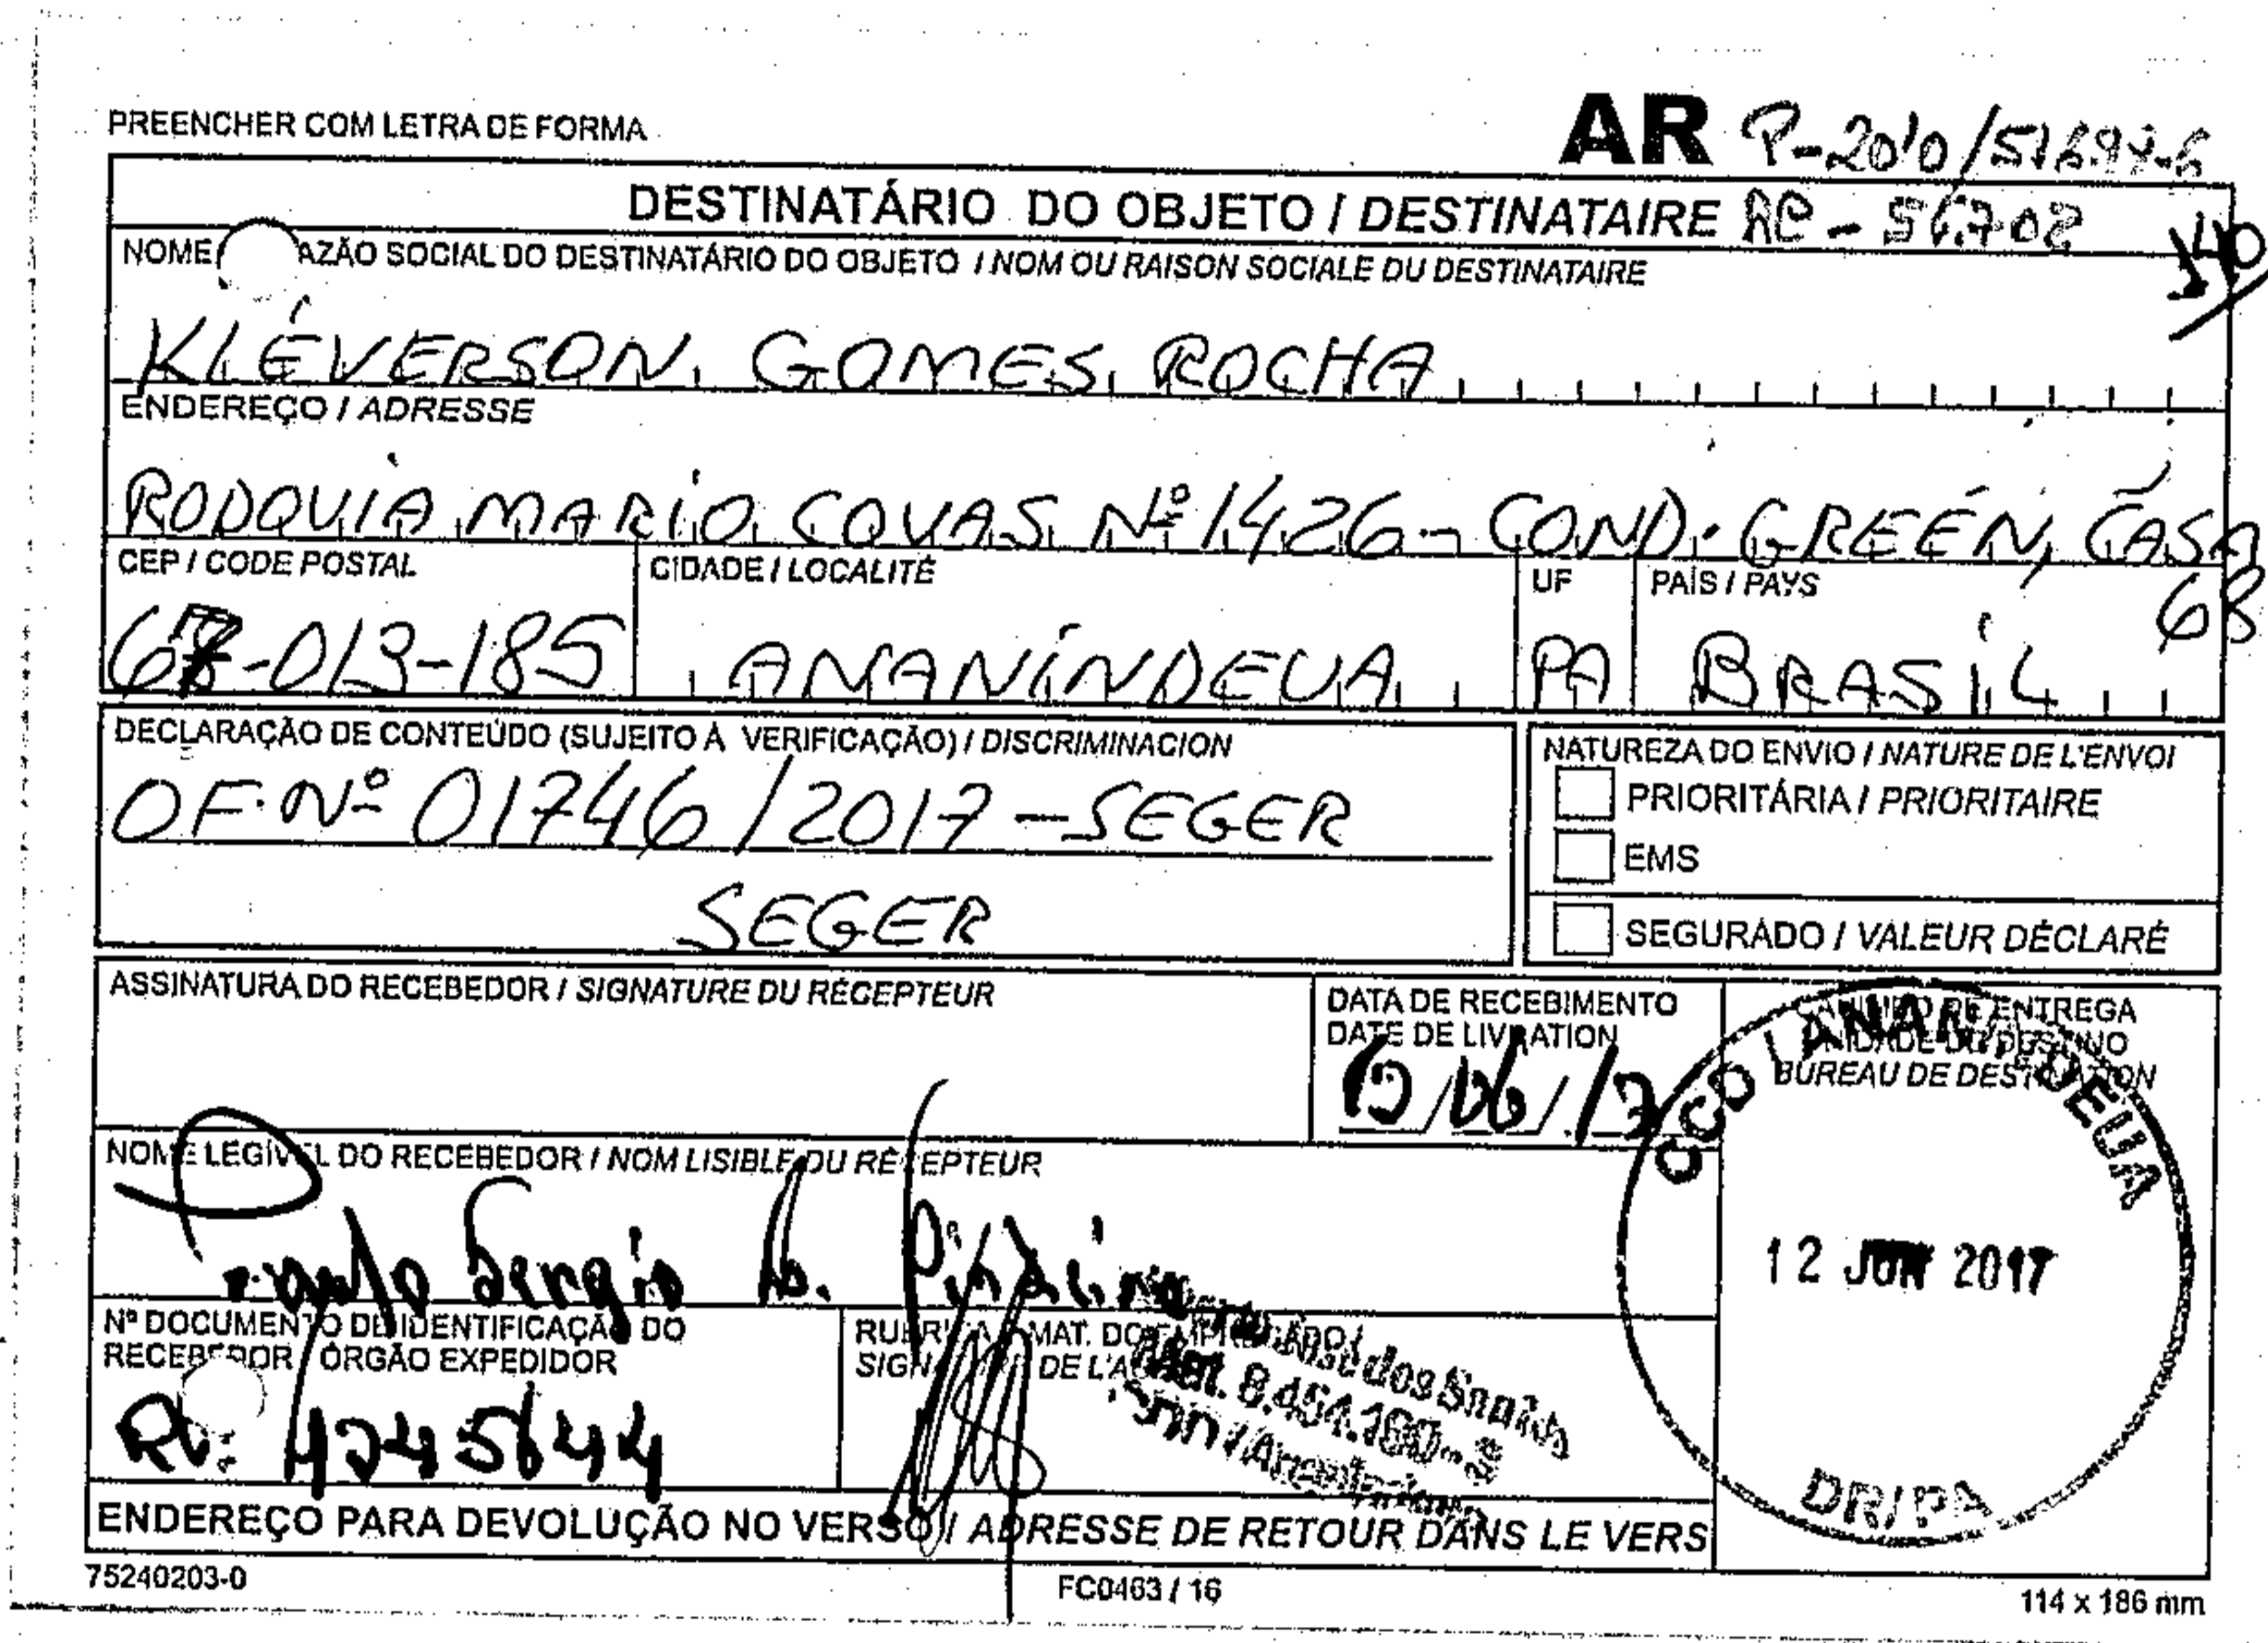 PREENCHER COM LETRA DE FORMA
AR P-2010/51697-6
DESTINATÁRIO DO OBJETO / DESTINATAIRE AC - 56702
NOME AZÃO SOCIAL DO DESTINATÁRIO DO OBJETO / NOM OU RAISON SOCIALE DU DESTINATAIRE
KLÉVERSON GOMES ROCHA
ENDEREÇO / ADRESSE
RODOVIA MARIO COVAS Nº 1426 - COND. GREEN, CASA
68
CEP / CODE POSTAL CIDADE / LOCALITÉ UF PAÍS / PAYS
67-013-185 ANANINDEUA PA BRASIL
DECLARAÇÃO DE CONTEÚDO (SUJEITO À VERIFICAÇÃO) / DISCRIMINACION
OF. Nº 01746/2017 - SEGER
SEGER
NATUREZA DO ENVIO / NATURE DE L'ENVOI
PRIORITÁRIA / PRIORITAIRE
EMS
SEGURADO / VALEUR DÉCLARÉ
ASSINATURA DO RECEBEDOR / SIGNATURE DU RÉCEPTEUR
DATA DE RECEBIMENTO
DATE DE LIVRATION
CARIMBO DE ENTREGA
UNIDADE DE DESTINO
BUREAU DE DESTINATION
CCD / ANANINDEUA
12 JUN 2017
DR/PA
NOME LEGÍVEL DO RECEBEDOR / NOM LISIBLE DU RÉCEPTEUR
Paulo Sergio
Nº DOCUMENTO DE IDENTIFICAÇÃO DO
RECEBEDOR / ÓRGÃO EXPEDIDOR
4245644
RUBRICA E MAT. DO EMPREGADO /
SIGNATURE DE L'AGENT
dos Santos
Mat. 8.454.160-3
ENDEREÇO PARA DEVOLUÇÃO NO VERSO / ADRESSE DE RETOUR DANS LE VERS
75240203-0
FC0463 / 16
114 x 186 mm